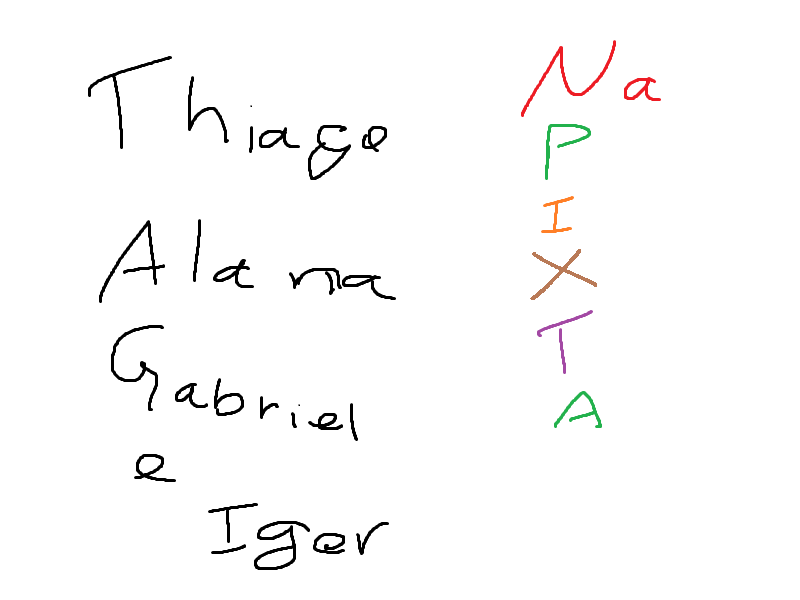 Thiago
Alana
Gabriel
e
Igor
Na
P
I
X
T
A